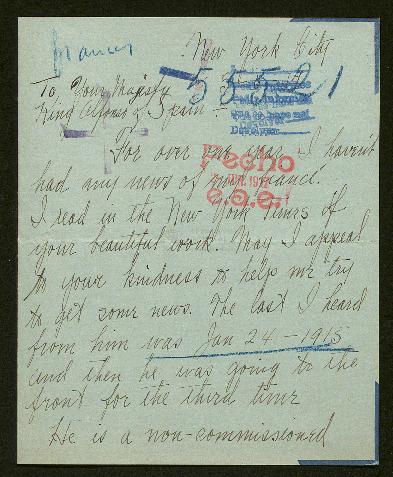 New York City
55521
To Your Majesty
King Alfonso of Spain -
For over one year I haven't
Fecho
had any news of my fiancé.
e.a.e.
I read in the New York Times of
your beautiful work. May I appeal
to your kindness to help me try
to get some news. The last I heard
from him was Jan 24 - 1915
and then he was going to the
front for the third time
He is a non-commissioned